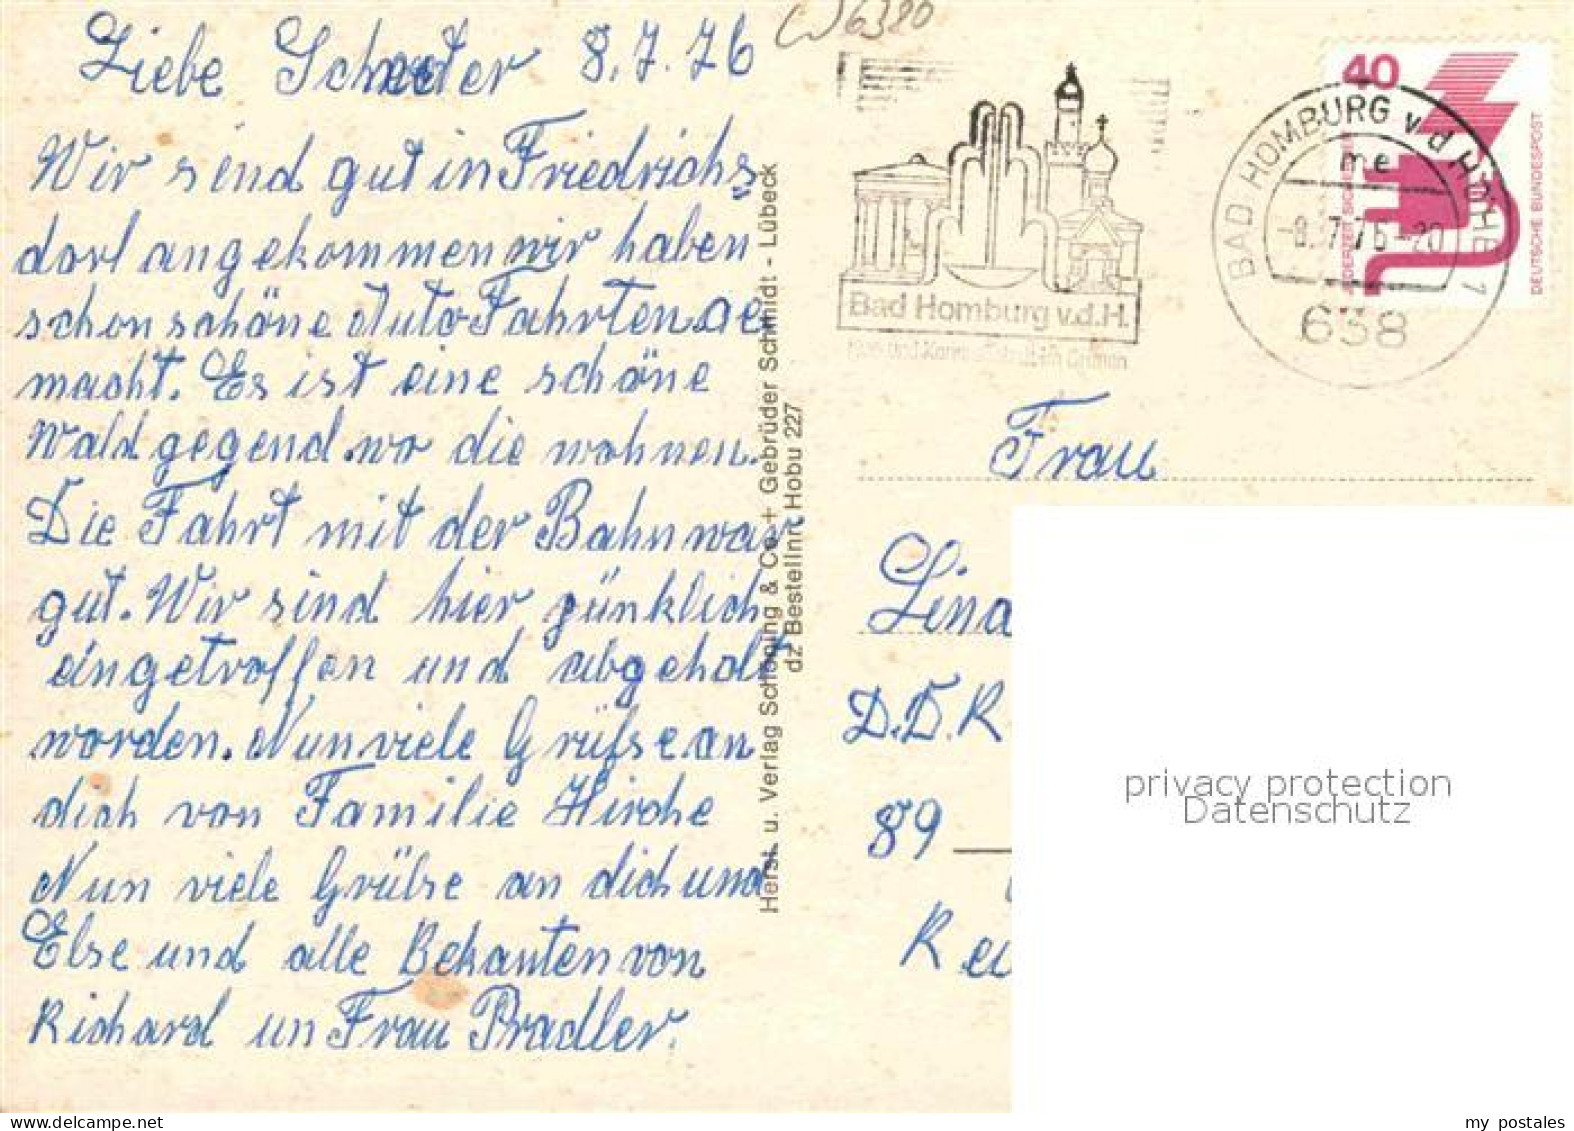 Liebe Schwester 8.7.76
Wir sind gut in Friedrichs=
dorf angekommen wir haben
schon schöne Auto Fahrten ge
macht. Es ist eine schöne
Wald gegend wo die wohnen.
Die Fahrt mit der Bahn war
gut. Wir sind hier pünklich
eingetroffen und abgeholt
worden. Nun viele Grüße an
dich von Familie Hirche
Nun viele Grüße an dich und
Else und alle Bekanten von
Richard un Frau Pradler.
Herst. u. Verlag Schöning & Co + Gebrüder Schmidt - Lübeck
dz Bestellnr. Hobu 227
6380
Bad Homburg v.d.H.
BAD HOMBURG v d HÖHE 1
me
-8.-7.76-20
638
40
JEDERZEIT SICHERHEIT
DEUTSCHE BUNDESPOST
Frau
Lina
D.D.R
89
Rei
privacy protection
Datenschutz
my postales